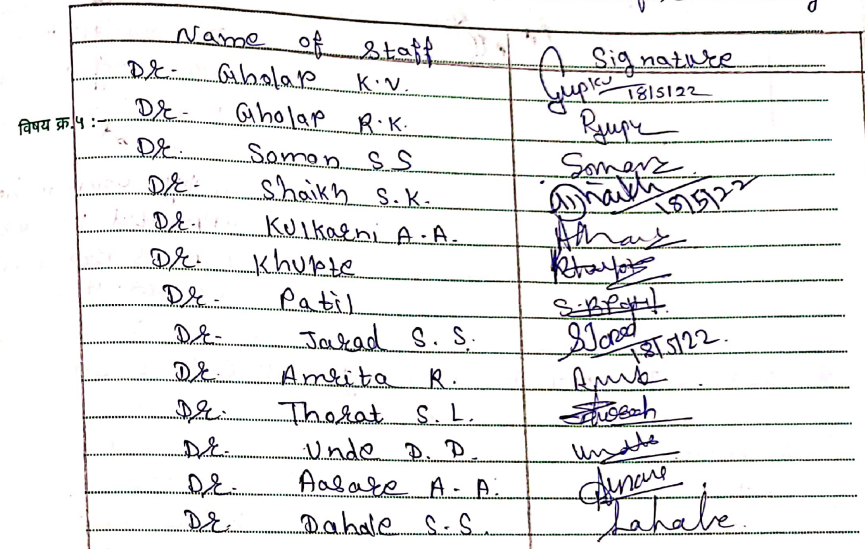 Name of Staff Signature
Dr. Gholap K.V. 18/5/22
विषय क्र.५ :- Dr. Gholap R.K.
Dr. Soman S S Soman
Dr. Shaikh S.K. Shaikh 18/5/22
Dr. Kulkarni A.A.
Dr. Khupte
Dr. Patil S.B.Patil
Dr. Jarad S.S. SJarad 18/5/22.
Dr. Amrita R.
Dr. Thorat S.L.
Dr. Unde D.D.
Dr. Aasare A.A.
Dr. Dahale S.S. Dahale.